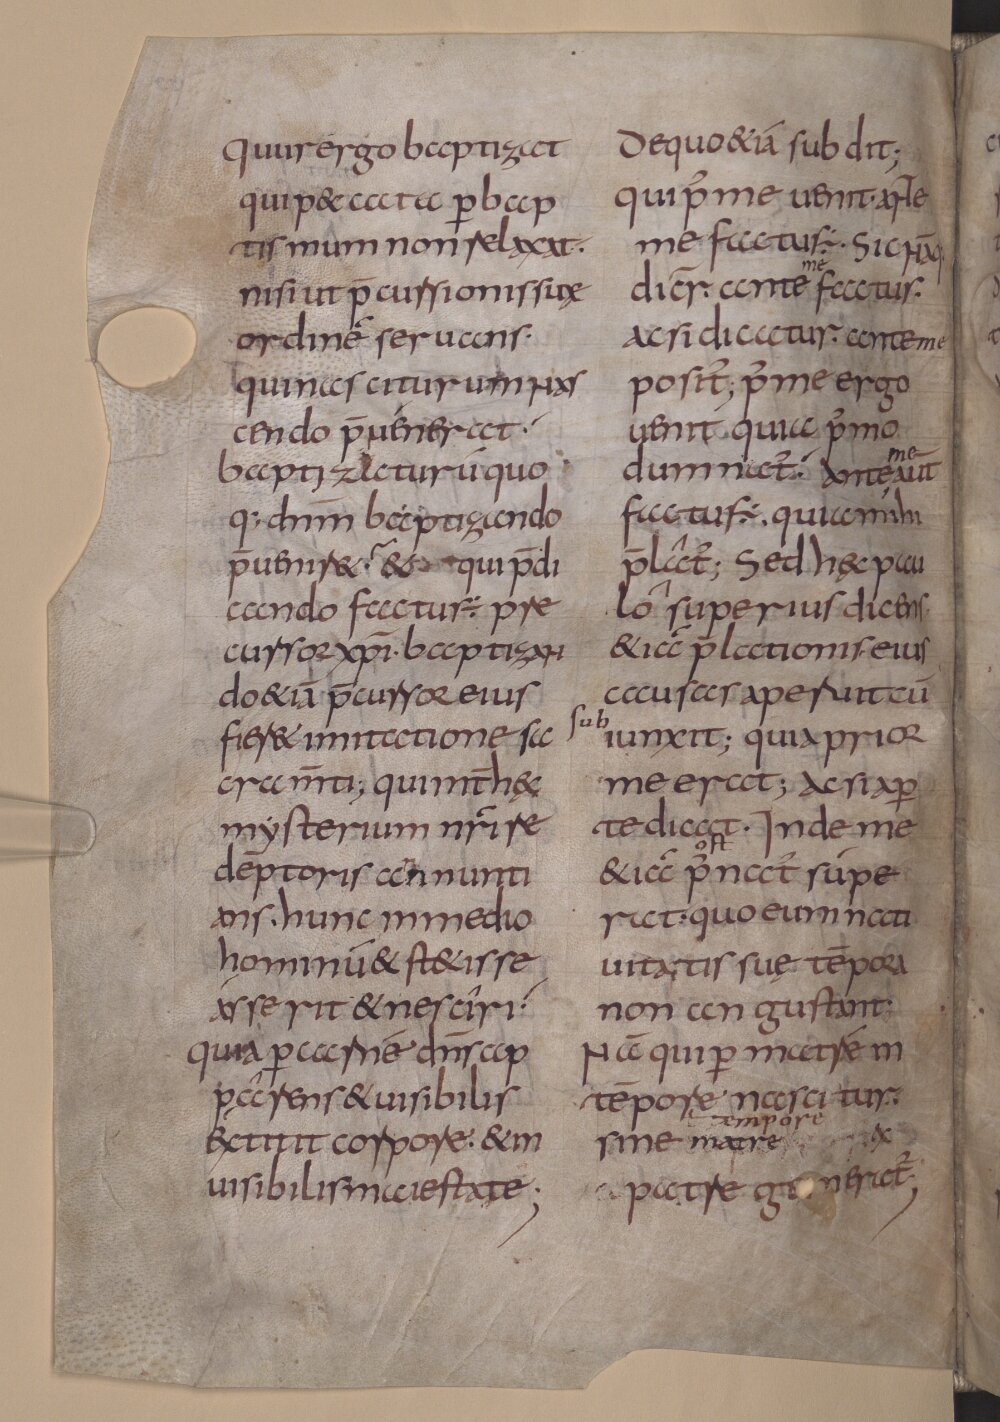 Quur ergo baptizat
qui peccata p̄ bap
tismum non relaxat·
nisi ut p̄cursionis suę
ordinē seruans·
qui nasciturum nas
cendo p̄uenerat·
baptizaturū quo
q; dn̄m baptizando
p̄ueniret· & qui p̄di
cando factus; pre
cursor xp̄i· baptizan
do &iā p̄cursor eius
fier& imitatione sa
cramti; qui int̄ hęc
mysterium nr̄i re
dēptoris adnunti
ans· hunc in medio
hominū & st&isse
asserit & nesciri·
quia p̄ carnē dn̄s ap
parens & uisibilis
extitit corpore· & in
uisibilis maiestate;
De quo &iā subdit;
qui p̄ me uenit· ante
me factus; Sic nāq;
dicr̄· ante me factus·
ac si dicatur· ante me
posit; p̄ me ergo
uenit quia p̄mo
dum nat; Ante me aūt
factus; quia mihi
p̄lat; Sed hęc pau
lo superius dicens·
& iā p̄lationis eius
causas aperuit cū
subiunxit; quia prior
me erat; Ac si ap̄
te dicat· Inde me
& iā post nat supe
rat· quo eum nati
uitatis suę tēpora
non angustant·
Nā qui p̄ matrē in
tēpore nascitur·
sine tempore matre ex
a patre generat;